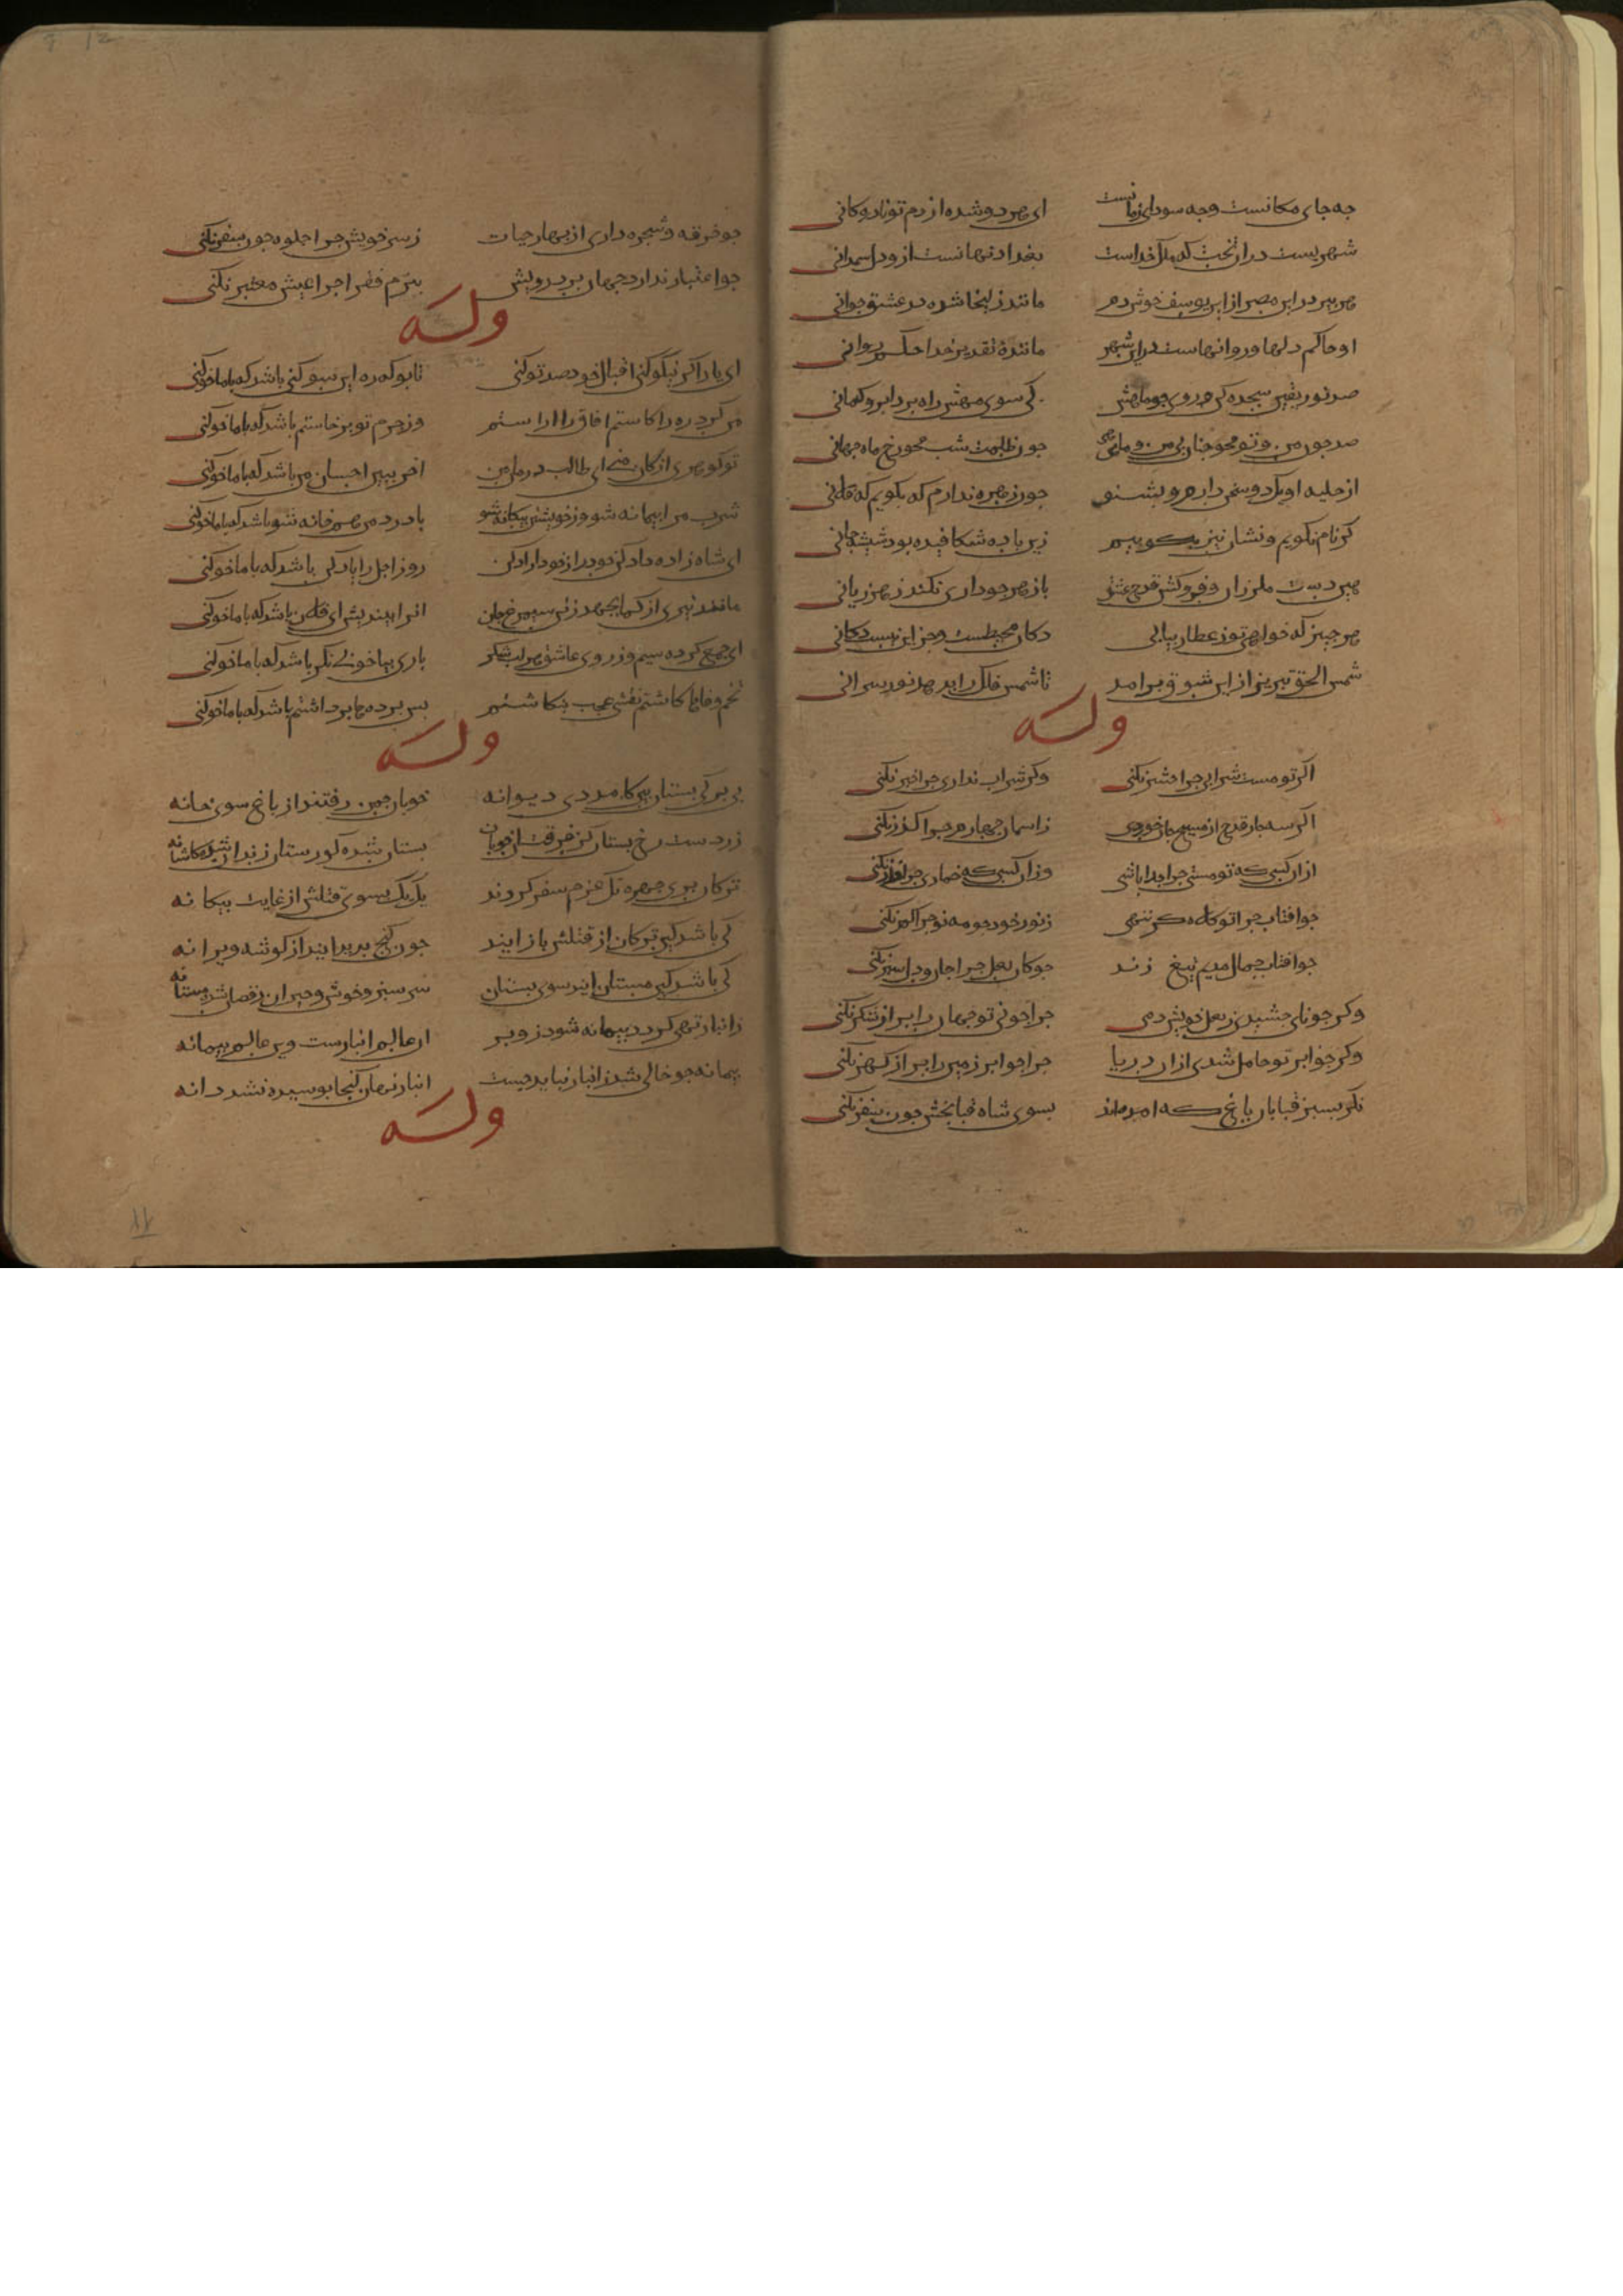 جه جای مکانست وجه سودای زمانست ای هر دو شده از دم تو نادره کانی
شهریست در ان تخت که ملک خداست بغداد نهانست ازو دل همدانی
هر پیر در این مصر از این یوسف خوش دم مانند زلیخا شده در عشق جوانی
او حاکم دلها و روانهاست در این شهر مانندهٔ تقدیر خدا حکم روانی
صد نور یقین سجده کن روی جو ماهش کی سوی مهش راه برد ابر و کمانی
صد جون من و تو محو جنان بی من و مایی جون ظلمت شب محو رخ ماه جهانی
از حلیه او یک دو سخن دارم و بشنو جون زهره ندارم که بکویم که فلانی
کر نام نکویم و نشان نیز نکویم زین باده شکافیده بود شیشه جانی
هین دست ملرزان و فروکش قدح عشق بازهر جو داری نکند زهر زیانی
هر جیز که خواهی تو ز عطار بیابی دکان محیطست و جز این نیست دکانی
شمس الحق تبریز از این شوق برامد تا شمس فلک را بدهد نور سرانی
وله
اکر تو مست شرابی جرا حشر نکنی وکر شراب نداری جرا خبر نکنی
اکر سه جار قدح از مسیح جان خوردی ز اسمان جهارم جرا کذر نکنی
از ان کسی که تو مستی جرا جدا باشی وز ان کسی که خماری جرا حذر نکنی
جو افتاب جرا تو کلاه کژ ننهی ز نور خود جو مه نو جرا کمر نکنی
جو افتاب جمال قدیم تیغ زند جو کان لعل جرا جان و دل سپر نکنی
وکر جو نای جشیدی ز لعل خویش دمی جرا جو نی تو جهان را پر از شکر نکنی
وکر جو ابر تو حامل شدی از ان دریا جرا جو ابر زمین را پر از کهر نکنی
نکر بسبز قبایان باغ که امدهاند بسوی شاه قبا بخش جون سفر نکنی
جو خرقه و شجره داری از بهار حیات ز سر خویش جرا جلوه جون سفر نکنی
جو اعتبار ندارد جهان بر درویش ببزم فقر اجرا عیش معتبر نکنی
وله
ای یار اکر نیکو کنی اقبال خود صد تو کنی تا بو که رو این سو کنی باشد که با ما خو کنی
من کرد ره را کاستم افاق را اراستم وز جرم تو برخاستم باشد که با ما خو کنی
تو کوهری از کان من ای طالب درمان من اخر ببین احسان من باشد که با ما خو کنی
شرب مرا پیمانه شو وز خویشتن بیکانه شو با درد من همخانه شو باشد که با ما خو کنی
ای شاه زاده داد کن خود را ز خود ازاد کن روز اجل را یاد کن باشد که با ما خو کنی
مانند تیری از کمان بجهد ز تن سیمرغ جان انرا بیندیش ای فلان باشد که با ما خو کنی
ای جمع کرده سیم و زر وی عاشق هر لب شکر باری بیا خوبی نکر باشد که با ما خو کنی
تخم وفاها کاشتم نقشی عجب بنکاشتم بس پرده ها برداشتم باشد که با ما خو کنی
وله
بی برکی بستان بین کامد دی دیوانه خوبان جمن رفتند از باغ سوی خانه
زردست رخ بستان کز فرقت ان خوبان بستان شده کورستان زندان شده کاشانه
ترکان پری جهره نک عزم سفر کردند یک یک بسوی قتلش از غایت بیکانه
کی باشد کین ترکان از قتلش باز ایند جون کنج بدید ایند از کوشه ویرانه
کی باشد کین مستان ایند سوی بستان سر سبز و خوش و حیران رقصان شده مستانه
ز انبار تهی کردد پیمانه شود زو پر ان عالم انبارست وین عالم پیمانه
پیمانه جو خالی شد ز انبار نباید جست انبار نهان کنجا پوسیده نشد دانه
وله